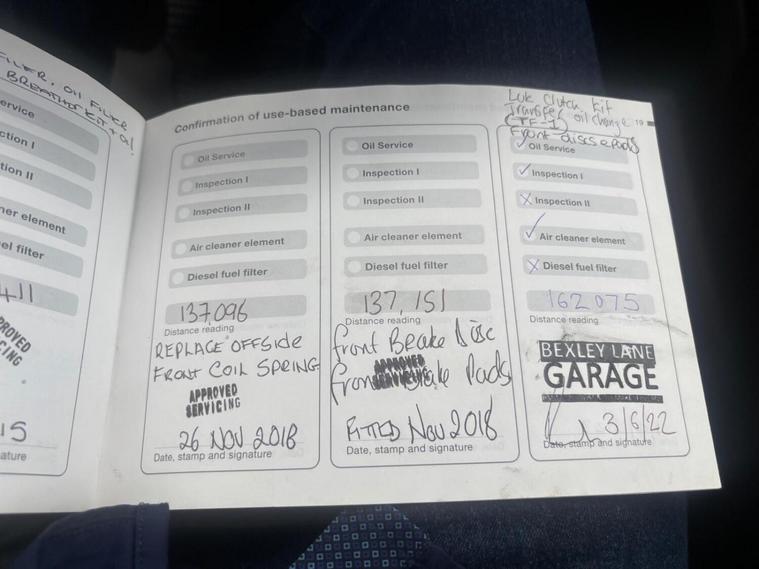 FILTER, OIL FILTER
BREATHER KIT + Oil
ervice
ction I
tion II
ner element
el filter
411
PROVED
CING
15
ature
Confirmation of use-based maintenance
Oil Service
Inspection I
Inspection II
Air cleaner element
Diesel fuel filter
137096
Distance reading
REPLACE OFFSIDE
FRONT COIL SPRING
APPROVED
SERVICING
26 NOV 2018
Date, stamp and signature
Oil Service
Inspection I
Inspection II
Air cleaner element
Diesel fuel filter
137,151
Distance reading
front Brake Disc
APPROVED
SERVICING
front Brake Pads
FITTED Nov 2018
Date, stamp and signature
Luk Clutch Kit
Transfer oil change
(TF-1)
Front discs e pads
19
Oil Service
Inspection I
Inspection II
Air cleaner element
Diesel fuel filter
162075
Distance reading
BEXLEY LANE
GARAGE
3/6/22
Date, stamp and signature